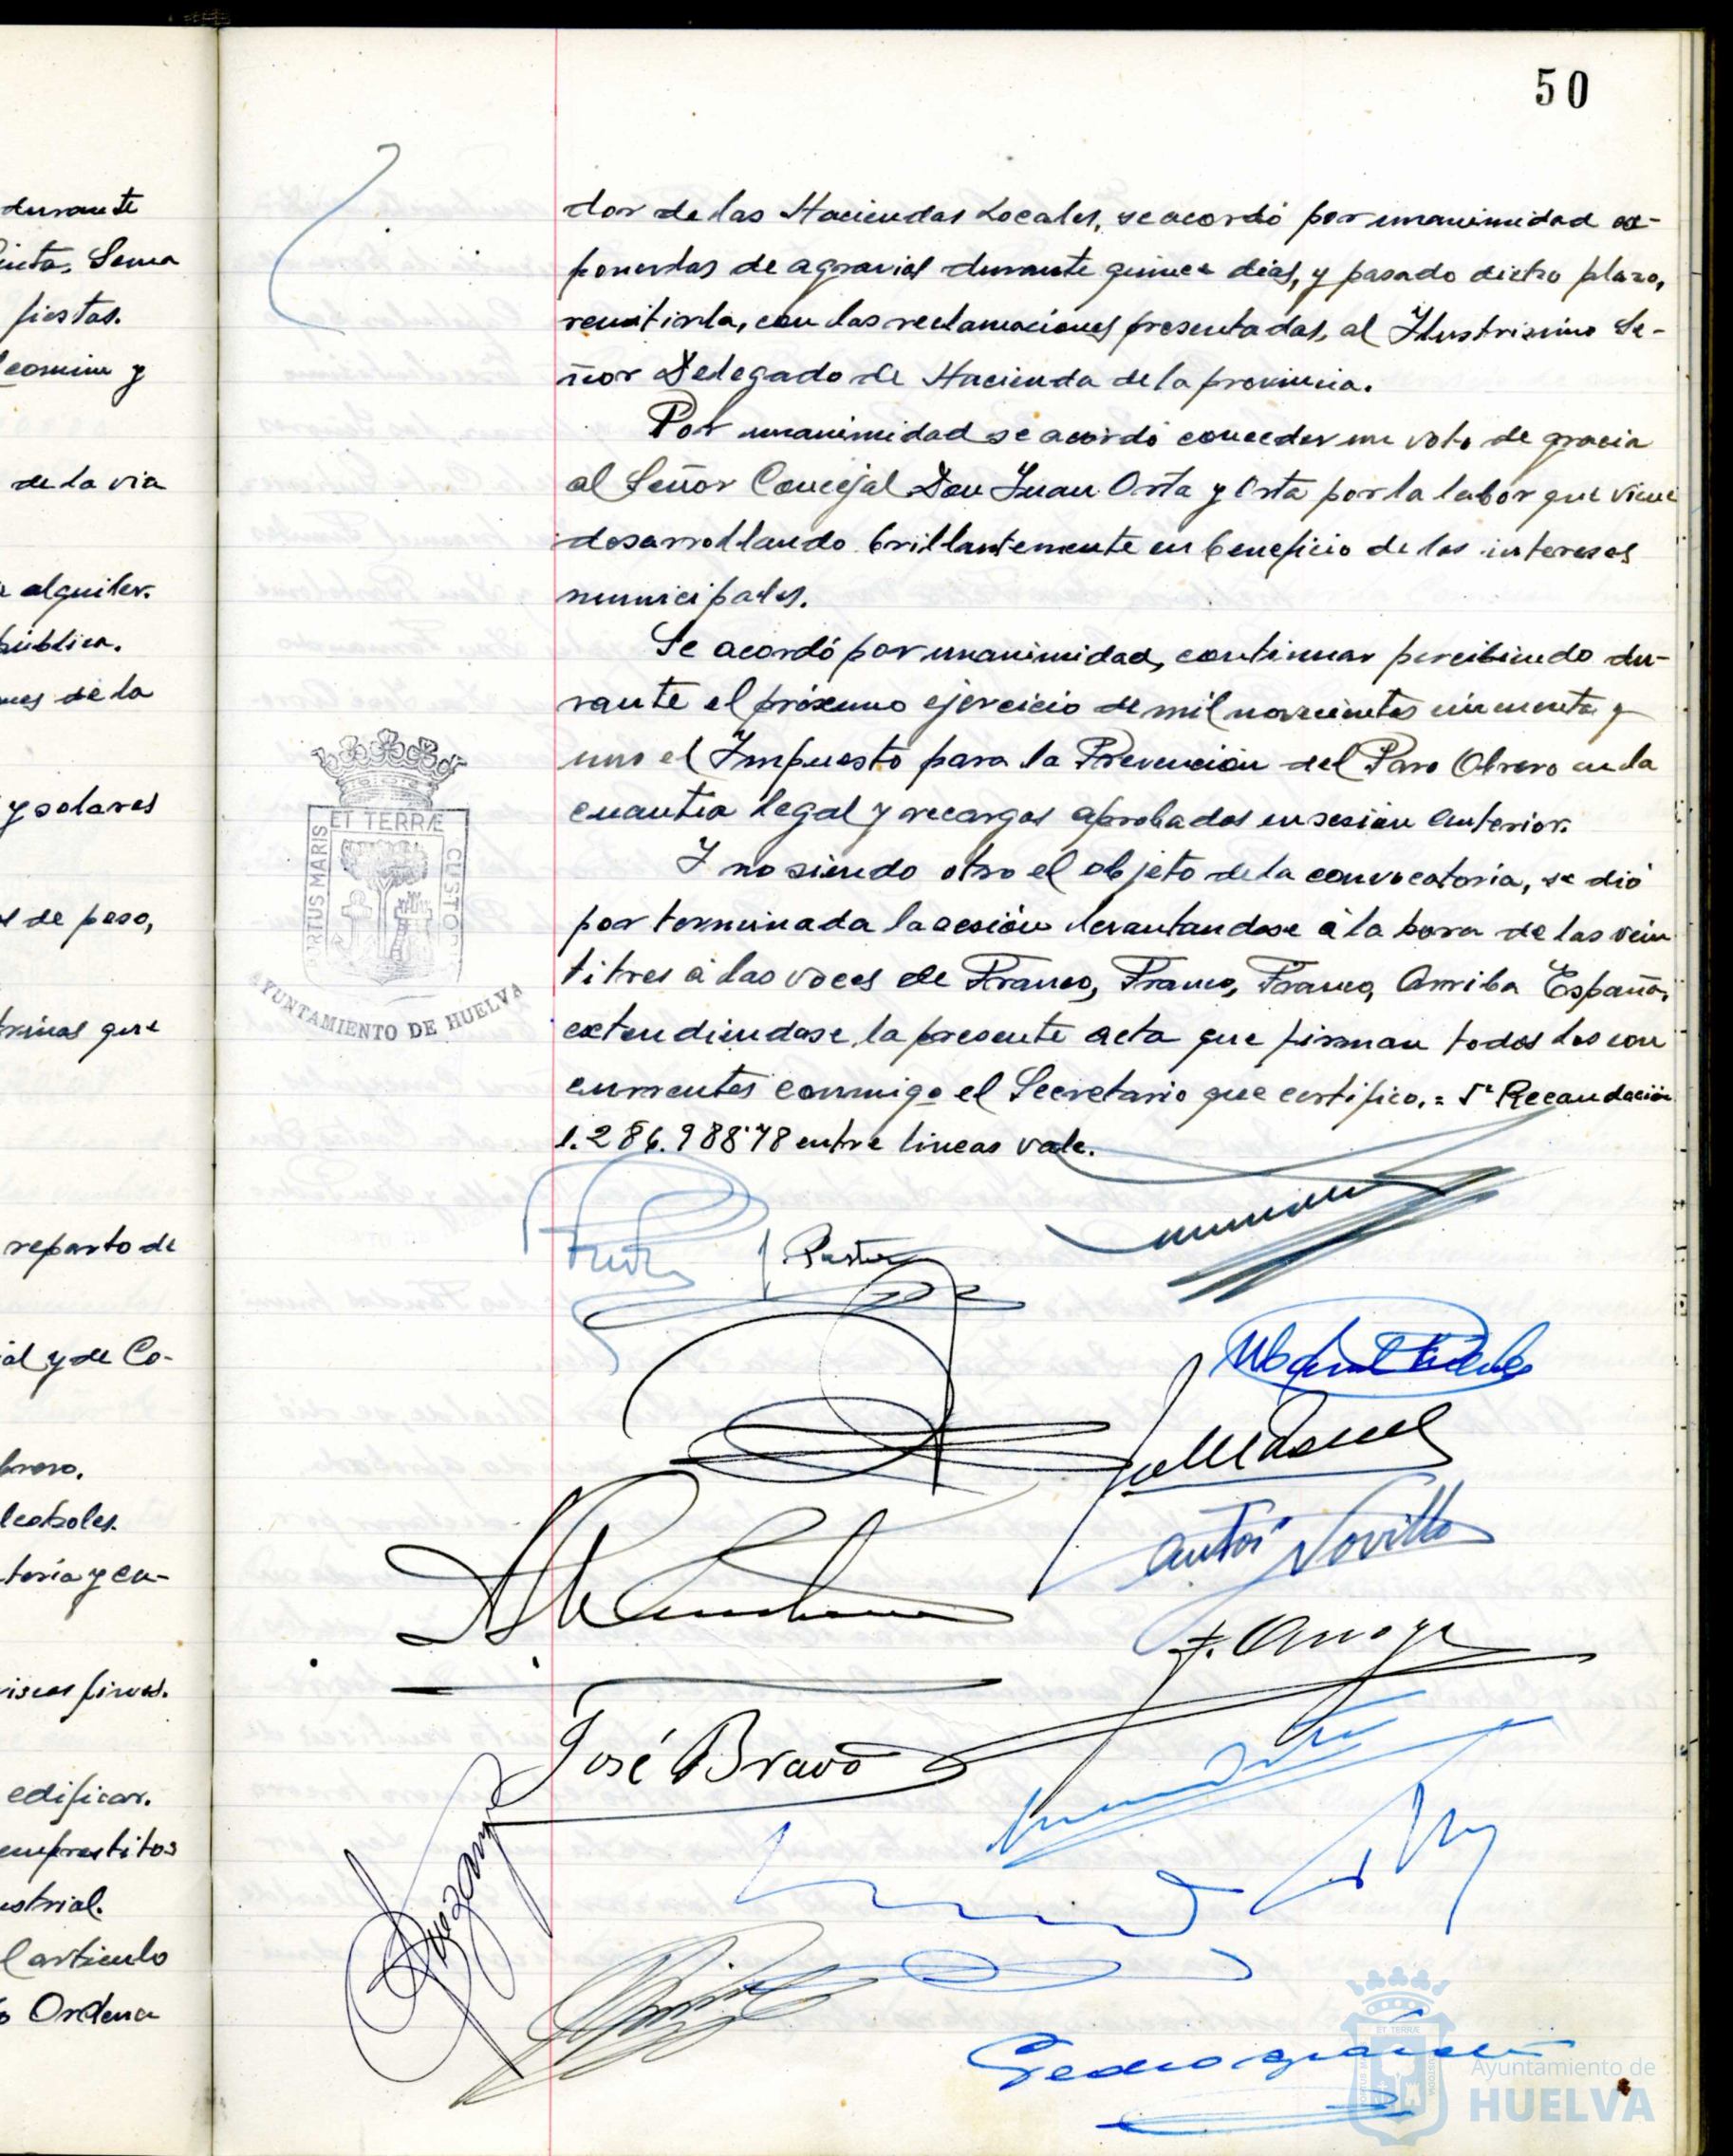 50
durante
fiestas.
comun y
de la via
alquiler.
pública.
de la
y solares
de peso,
que
reparto de
al y de Co-
toria y en-
edificar.
emprestitos
ustrial.
l articulo
Ordena
dor de las Haciendas Locales, se acordó por unanimidad ex-
ponerlas de agravios durante quince dias, y pasado dicho plazo,
remitirla, con las reclamaciones presentadas, al Ilustrisimo Se-
ñor Delegado de Hacienda de la provincia.
Por unanimidad se acordó conceder un voto de gracia
al Señor Concejal Don Juan Orta y Orta por la labor que viene
desarrollando brillantemente en beneficio de los intereses
municipales.
Se acordó por unanimidad, continuar percibiendo du-
rante el próximo ejercicio de mil novecientos cincuenta y
uno el Impuesto para la Prevención del Paro Obrero en la
cuantia legal y recargos aprobados en sesión anterior.
Y no siendo otro el objeto de la convocatoria, se dió
por terminada la sesión levantandose á la hora de las vein
titres á las voces de Franco, Franco, Franco, Arriba España,
extendiendose la presente acta que firman todos los con
currentes conmigo el Secretario que certifico. = 5ª Recaudación
1.286.988'78 entre lineas vale.
PORTUS MARIS ET TERRÆ CUSTOD
AYUNTAMIENTO DE HUELVA
J. Pastor
Novillo
José Bravo
Ayuntamiento de
HUELVA